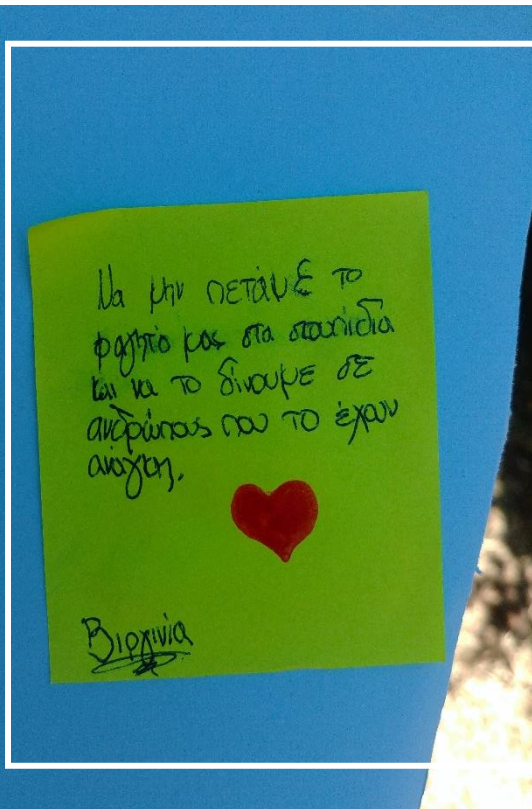 Να μην πετάμε το
φαγητό μας στα σκουπίδια
και να το δίνουμε σε
ανθρώπους που το έχουν
ανάγκη.
Βιργινία